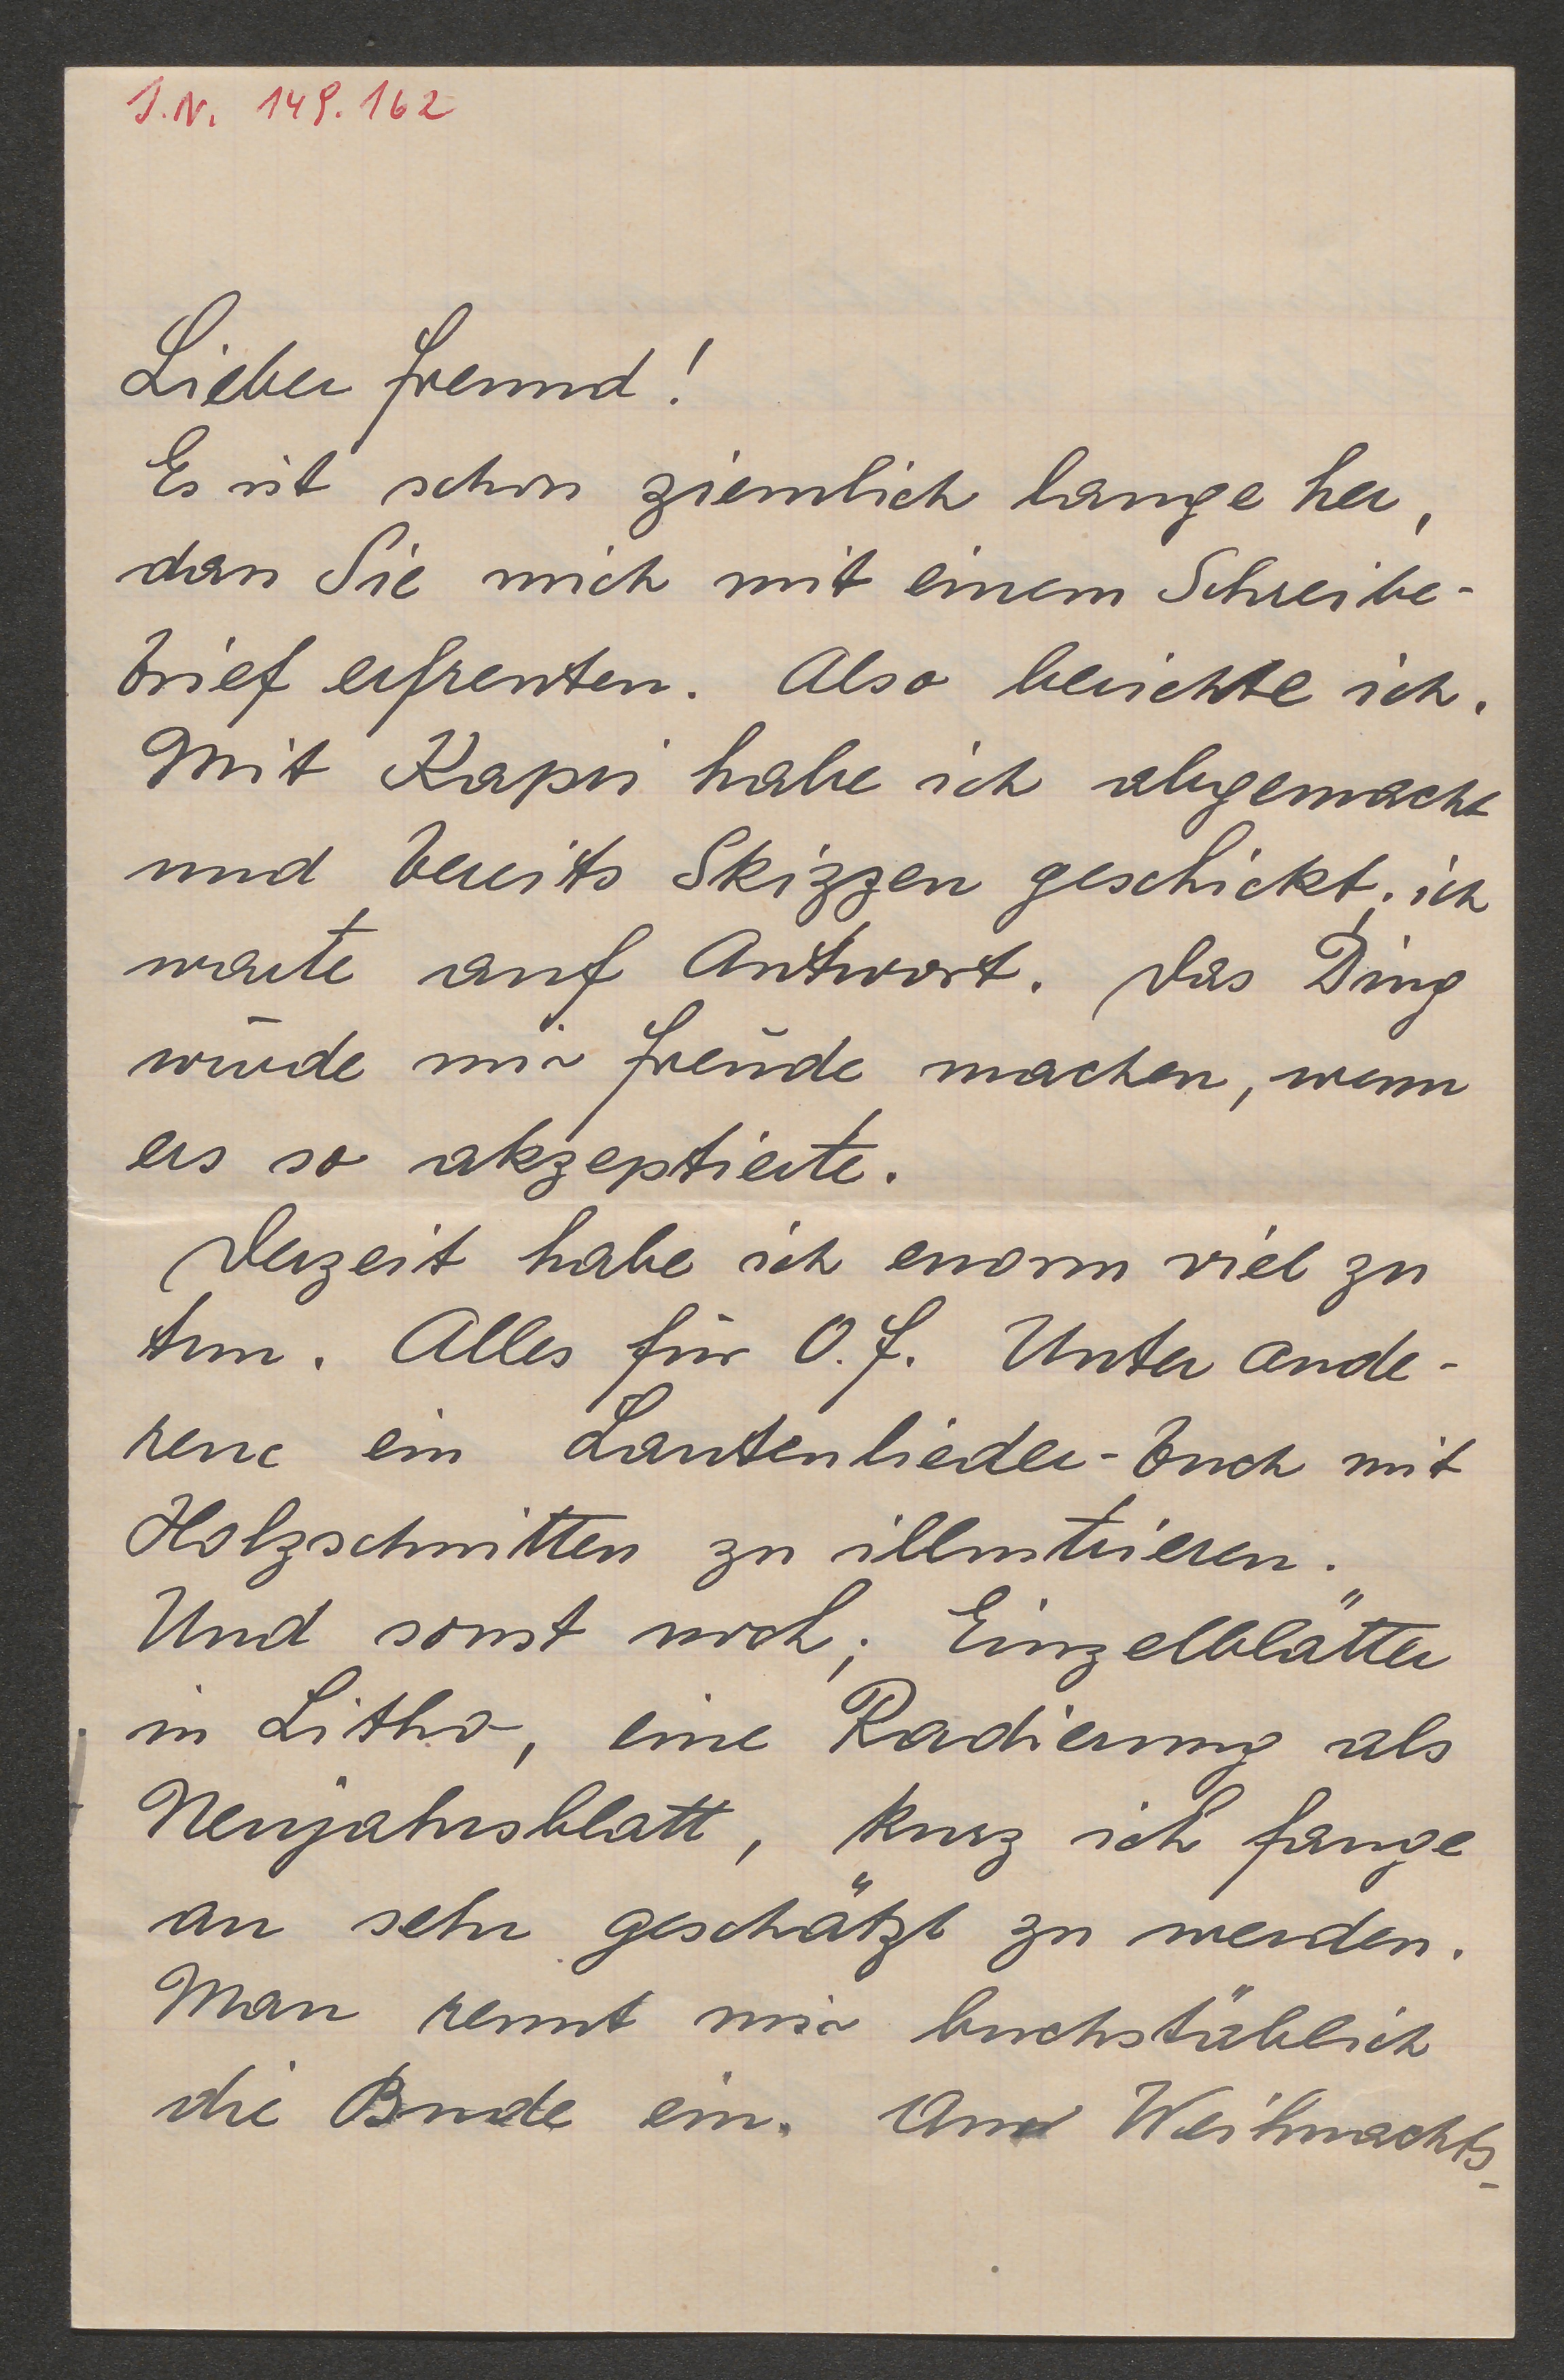 J.N. 149.162
Lieber Freund!
Es ist schon ziemlich lange her,
dass Sie mich mit einem Schreibe-
brief erfreuten. Also berichte ich.
Mit Kapri habe ich abgemacht
und bereits Skizzen geschickt; ich
warte auf Antwort. Das Ding
würde mir Freude machen, wenn
ers so akzeptierte.
Derzeit habe ich enorm viel zu
tun. Alles für O.F. Unter ande-
rene ein Lautenlieder-buch mit
Holzschnitten zu illustrieren.
Und sonst noch; Einzelblätter
in Litho, eine Radierung als
Neujahrsblatt, kurz ich fange
an sehr geschätzt zu werden.
Man rennt mir buchstäblich
die Bude ein. Am Weihnachts-